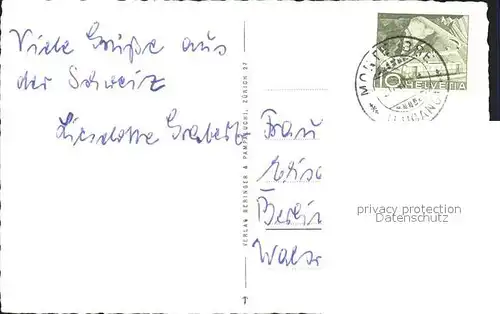 Viele Grüße aus
der Schweiz
Lieselotte
Frau
Berlin
VERLAG BERINGER & PAMPALUCHI, ZÜRICH 27
10
HELVETIA
MONTE BRE
LUGANO
privacy protection
Datenschutz